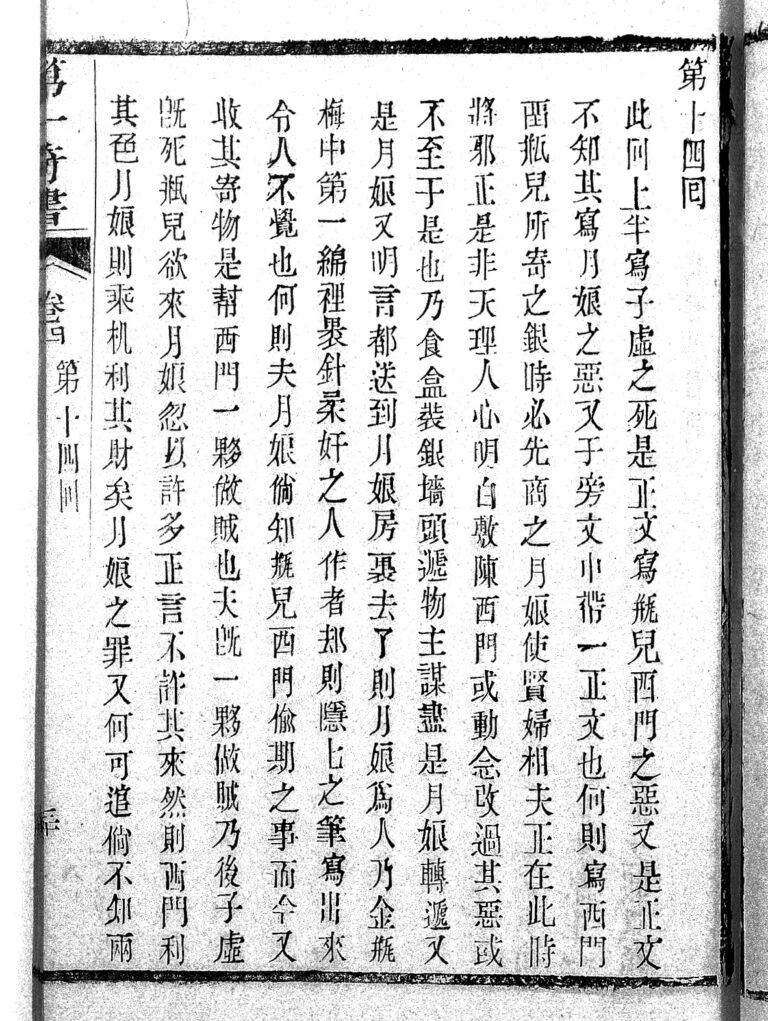 第十四回
此回上半寫子虛之死是正文寫瓶兒西門之惡又是正文
不知其寫月娘之惡又于旁文中帶一正文也何則寫西門
畱瓶兒所寄之銀時必先商之月娘使賢婦相夫正在此時
將邪正是非天理人心明白敷陳西門或動念改過其惡或
不至于是也乃食盒裝銀墻頭遞物主謀盡是月娘轉遞又
是月娘又明言都送到月娘房裏去了則月娘為人乃金瓶
梅中第一綿裡裹針柔奸之人作者却則隱匕之筆寫出來
令人不覺也何則夫月娘倘知瓶兒西門偷期之事而今又
收其寄物是幫西門一夥做賊也夫旣一夥做賊乃後子虛
旣死瓶兒欲來月娘忽以許多正言不許其來然則西門利
其色月娘則乘机利其財矣月娘之罪又何可逭倘不知兩
第一奇書
卷四
第十四回